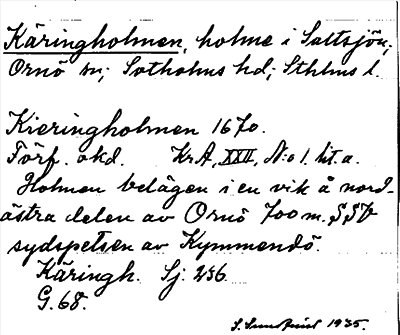 Käringholmen, holme i Saltsjön;
Ornö sn; Sotholms hd; Sthlms l.
Kieringholmen 1670.
Förf. okd. KrA, XXII, N:o 1. lit. a.
Holmen belägen i en vik å nord-
östra delen av Ornö 700 m. SSV
sydspetsen av Kymmendö.
Käringh. Sj: 236.
G. 68.
1935.